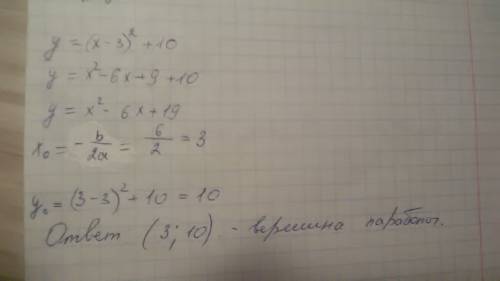 y = (x - 3)² + 10
y = x² - 6x + 9 + 10
y = x² - 6x + 19
x₀ = - b/2a = 6/2 = 3
y₀ = (3 - 3)² + 10 = 10
Ответ (3; 10) - вершина параболы.